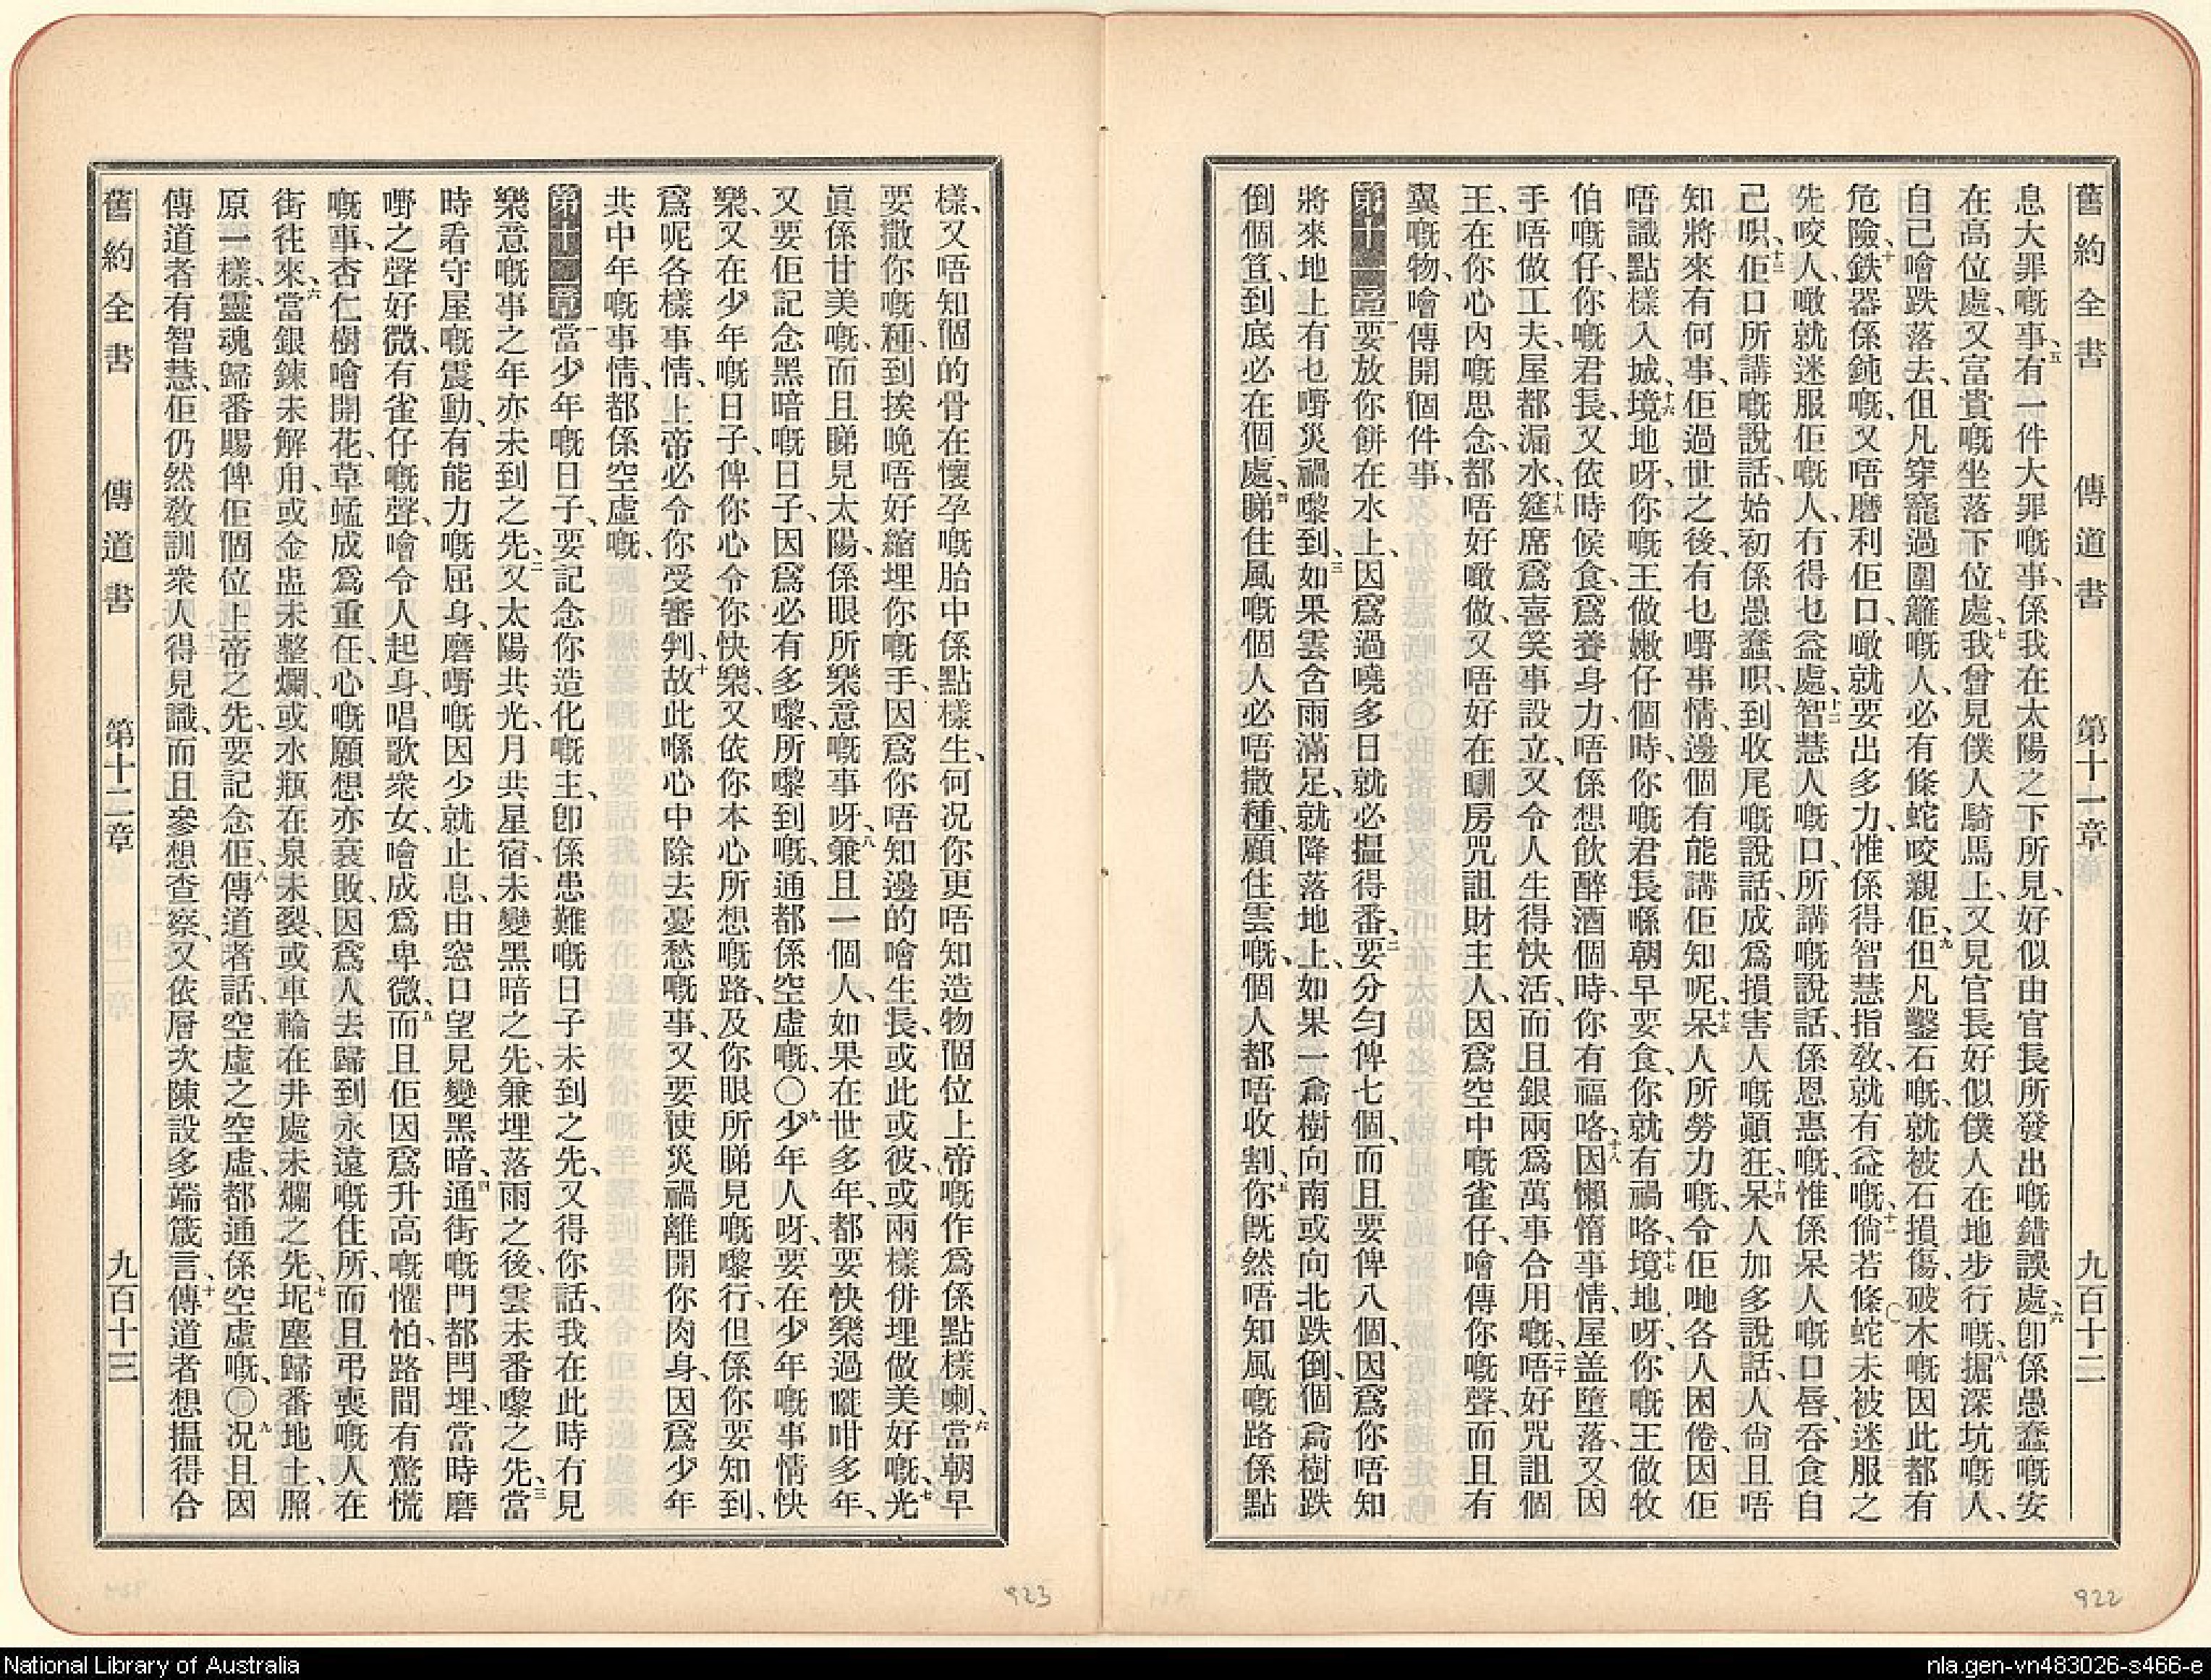 舊約全書 傳道書 第十一章 九百十二
息大罪嘅事、五有一件大罪嘅事、係我在太陽之下所見、好似由官長所發出嘅錯誤處、六卽係愚蠢嘅安
在高位處、又富貴嘅坐落下位處、七我曾見僕人騎馬上、又見官長好似僕人在地步行嘅、八掘深坑嘅人、
自己噲跌落去、但凡穿窿過圍籬嘅人、必有條蛇咬親佢、九但凡鑿石嘅、就被石損傷、破木嘅因此都有
危險、十鉄器係鈍嘅、又唔磨利佢口、噉就要出多力、惟係得智慧指敎、就有益嘅、十一倘若條蛇未被迷服之
先咬人、噉就迷服佢嘅人、冇得乜益處、十二智慧人嘅口、所講嘅說話、係恩惠嘅、惟係呆人嘅口唇、吞食自
己呮、十三佢口所講嘅說話、始初係愚蠢呮、到收尾嘅說話、成爲損害人嘅顚狂、十四呆人加多說話、人尙且唔
知將來有何事、佢過世之後、有乜嘢事情、邊個有能講佢知呢、十五呆人所勞力嘅、令佢哋各人困倦、因佢
唔識點樣入城、十六境地呀、你嘅王做嫩仔個時、你嘅君長喺朝早要食、你就有禍咯、十七境地呀、你嘅王做牧
伯嘅仔、你嘅君長、又依時候食、爲養身力、唔係想飮醉酒個時、你有福咯、十八因懶惰事情、屋盖墮落、又因
手唔做工夫、屋都漏水、十九筵席爲喜笑事設立、又令人生得快活、而且銀兩爲萬事合用嘅、二十唔好咒詛個
王、在你心內嘅思念、都唔好噉做、又唔好在瞓房咒詛財主人、因爲空中嘅雀仔、噲傳你嘅聲、而且有
翼嘅物、噲傳開個件事、
第十一章一要放你餅在水上、因爲過嘵多日就必搵得番、二要分勻俾七個、而且要俾八個、因爲你唔知
將來地上有乜嘢災禍嚟到、三如果雲含雨滿足、就降落地上、如果一樖樹向南或向北跌倒、個樖樹跌
倒個笪、到底必在個處、四睇住風嘅個人必唔撒種、願住雲嘅、個人都唔收割、五你旣然唔知風嘅路係點
樣、又唔知個的骨在懷孕嘅胎中係點樣生、何况你更唔知造物個位上帝嘅作爲係點樣喇、六當朝早
要撒你嘅種、到挨晚唔好縮埋你嘅手、因爲你唔知邊的噲生長、或此或彼、或兩樣併埋做美好嘅、七光
眞係甘美嘅、而且睇見太陽、係眼所樂意嘅事呀、八兼且一個人、如果在世多年、都要快樂過嘥咁多年、
又要佢記念黑暗嘅日子、因爲必有多嚟、所嚟到嘅、通都係空虛嘅、〇九少年人呀、要在少年嘅事情快
樂、又在少年嘅日子、俾你心令你快樂、又依你本心所想嘅路、及你眼所睇見嘅嚟行、但係你要知到、
爲呢各樣事情、上帝必令你受審判、十故此喺心中除去憂愁嘅事、又要使災禍離開你肉身、因爲少年
共中年嘅事情、都係空虛嘅、
第十二章一當少年嘅日子、要記念你造化嘅主、卽係患難嘅日子未到之先、又得你話、我在此時冇見
樂意嘅事之年亦未到之先、二又太陽共光、月共星宿、未變黑暗之先、兼埋落雨之後、雲未番嚟之先、三當
時看守屋嘅震動、有能力嘅屈身、磨嘢嘅因少就止息、由窓口望見變黑暗、四通街嘅門都閂埋、當時磨
嘢之聲好微、有雀仔嘅聲、噲令人起身、唱歌衆女、噲成爲卑微、五而且佢因爲升高嘅懼怕、路間有驚慌
嘅事、杏仁樹噲開花、草蜢成爲重任、心嘅願想亦衰敗、因爲人去歸到永遠嘅住所、而且弔喪嘅人在
街往來、六當銀鍊未解用、或金盅未整爛、或水瓶在泉未裂、或車輪在井處未爛之先、七坭塵歸番地土、照
原一樣、靈魂歸番賜俾佢個位上帝之先、要記念佢、八傳道者話、空虛之空虛、都通係空虛嘅、〇九况且因
傳道者有智慧、佢仍然敎訓衆人得見識、而且參想查察、又依層次陳設多端箴言、十傳道者想搵得合
舊約全書 傳道書 第十二章 九百十三
923
922
National Library of Australia
nla.gen-vn483026-s466-e